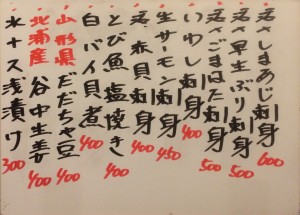 活 しまあじ刺身 600
活 早生ぶり刺身 500
活 さごまはた刺身 500
いわし刺身 400
生サーモン刺身 450
活 赤貝刺身 400
とび魚塩焼き 400
白バイ貝煮 400
山形県 だだちゃ豆 400
北浦産 谷中生姜 400
水ナス浅漬け 300